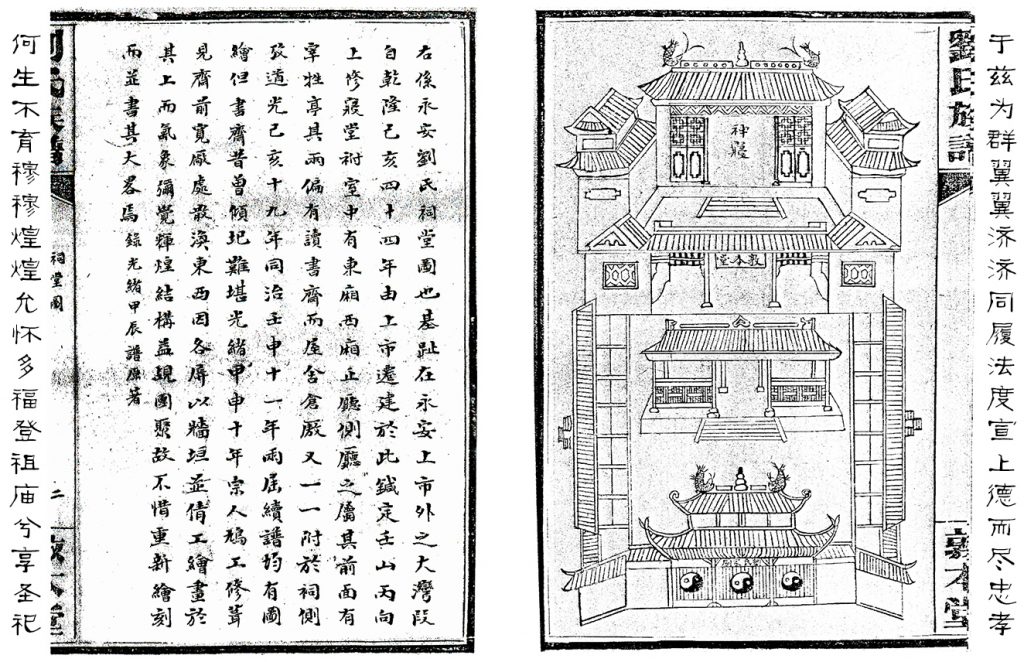 于兹为群翼翼济济同履法度宣上德而尽忠孝
劉氏族譜
敦本堂
神寢
敦本堂
右係永安劉氏祠堂圖也基趾在永安上市外之大灣段
自乾隆己亥四十四年由上市遷建於此鍼定壬山丙向
上修寢堂祔室中有東廂西廂正廳側廳之屬其前面有
宰牲亭具兩偏有讀書齋而屋舍倉廒又一一附於祠側
攷道光己亥十九年同治壬申十一年兩屆續譜均有圖
繪但書齋昔曾傾圮難堪光緒甲申十年宗人鳩工修葺
見齋前寬厰處散渙東西因各屏以牆垣並倩工繪畫於
其上而氣象彌覺輝煌結構益覘團聚故不惜重新繪刻
而並書其大畧焉 錄光緒甲辰譜原著
劉氏族譜
祠堂圖
二
敦本堂
何生不育穆穆煌煌允怀多福登祖庙兮享圣祀